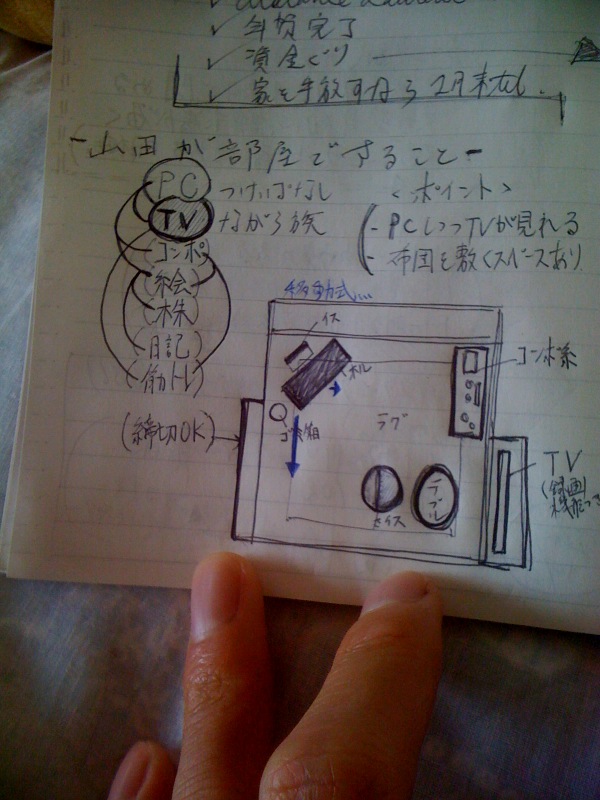 ✓ 年賀完了
✓ 資金ぐり
✓ 家を手放すなら2月末だし.
-山田が部屋でできること-
PC つけっぱなし
TV ながら族
コンポ
絵
株
日記
筋トレ
(締切OK)
<ポイント>
- PCしつつTVが見れる
- 布団を敷くスペースあり
移動式...
イス
コンポ系
ラグ
ゴミ箱
TV
(録画
テーブル